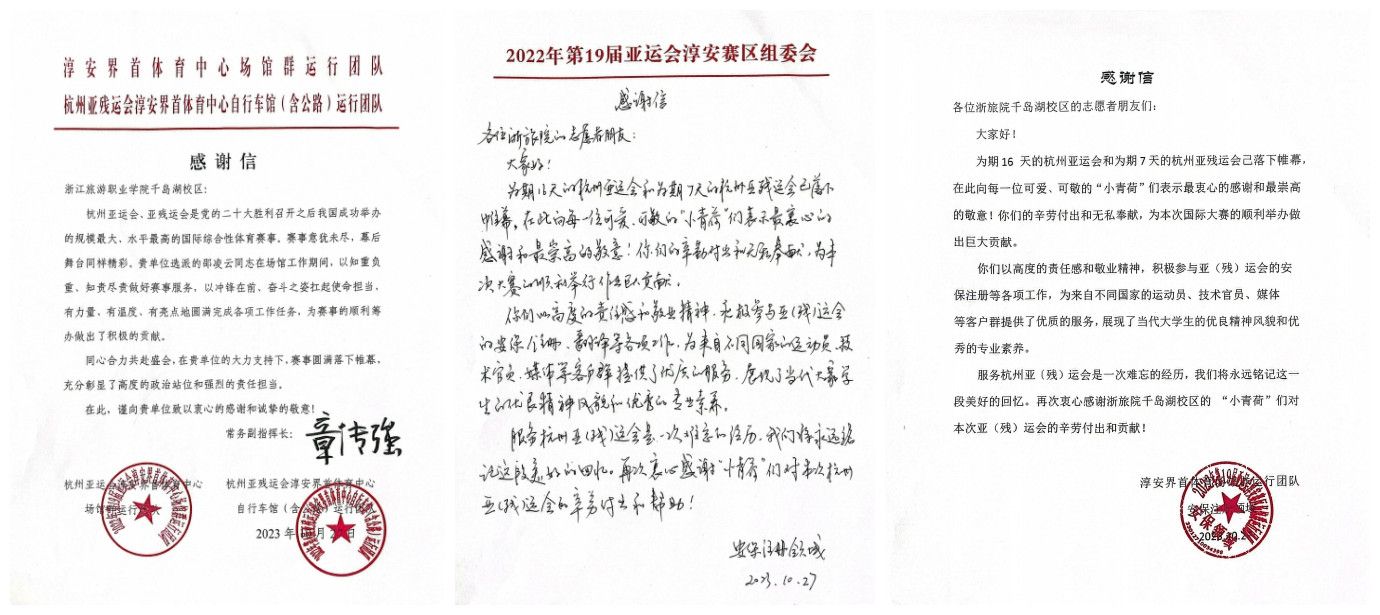 淳安界首体育中心场馆群运行团队
杭州亚残运会淳安界首体育中心自行车馆（含公路）运行团队
感谢信
浙江旅游职业学院千岛湖校区：
杭州亚运会、亚残运会是党的二十大胜利召开之后我国成功举办
的规模最大、水平最高的国际综合性体育赛事。赛事意犹未尽，幕后
舞台同样精彩。贵单位选派的邵凌云同志在场馆工作期间，以知重负
重、知责尽责做好赛事服务，以冲锋在前、奋斗之姿扛起使命担当，
有力量、有温度、有亮点地圆满完成各项工作任务，为赛事的顺利筹
办做出了积极的贡献。
同心合力共赴盛会，在贵单位的大力支持下，赛事圆满落下帷幕，
充分彰显了高度的政治站位和强烈的责任担当。
在此，谨向贵单位致以衷心的感谢和诚挚的敬意！
常务副指挥长：
章传强
杭州亚运会淳安界首体育中心
场馆群运行团队
杭州亚残运会淳安界首体育中心
自行车馆（含公路）运行团队
2023年10月2日
2022年第19届亚运会淳安赛区组委会
感谢信
各位浙旅院的志愿者朋友：
大家好！
为期16天的杭州亚运会和为期7天的杭州亚残运会已落下
帷幕，在此向每一位可爱、可敬的“小青荷”们表示最衷心的
感谢和最崇高的敬意！你们的辛勤付出和无私奉献，为本
次大赛的顺利举行作出巨大贡献。
你们以高度的责任感和敬业精神，积极参与亚（残）运会
的安保注册、翻译等各项工作，为来自不同国家的运动员、技
术官员、媒体等客户群提供了优质的服务，展现了当代大学
生的优良精神风貌和优秀的专业素养。
服务杭州亚（残）运会是一次难忘的经历，我们将永远铭
记这段美好的回忆。再次衷心感谢“小青荷”们对本次杭州
亚（残）运会的辛劳付出和帮助！
安保注册领域
2023.10.27
感谢信
各位浙旅院千岛湖校区的志愿者朋友们：
大家好！
为期16 天的杭州亚运会和为期7天的杭州亚残运会已落下帷幕，
在此向每一位可爱、可敬的“小青荷”们表示最衷心的感谢和最崇高
的敬意！你们的辛劳付出和无私奉献，为本次国际大赛的顺利举办做
出巨大贡献。
你们以高度的责任感和敬业精神，积极参与亚（残）运会的安
保注册等各项工作，为来自不同国家的运动员、技术官员、媒体
等客户群提供了优质的服务，展现了当代大学生的优良精神风貌和优
秀的专业素养。
服务杭州亚（残）运会是一次难忘的经历，我们将永远铭记这一
段美好的回忆。再次衷心感谢浙旅院千岛湖校区的 “小青荷”们对
本次亚（残）运会的辛劳付出和贡献！
淳安界首体育中心场馆群运行团队
安保注册领域
2023.10.27
安保领域